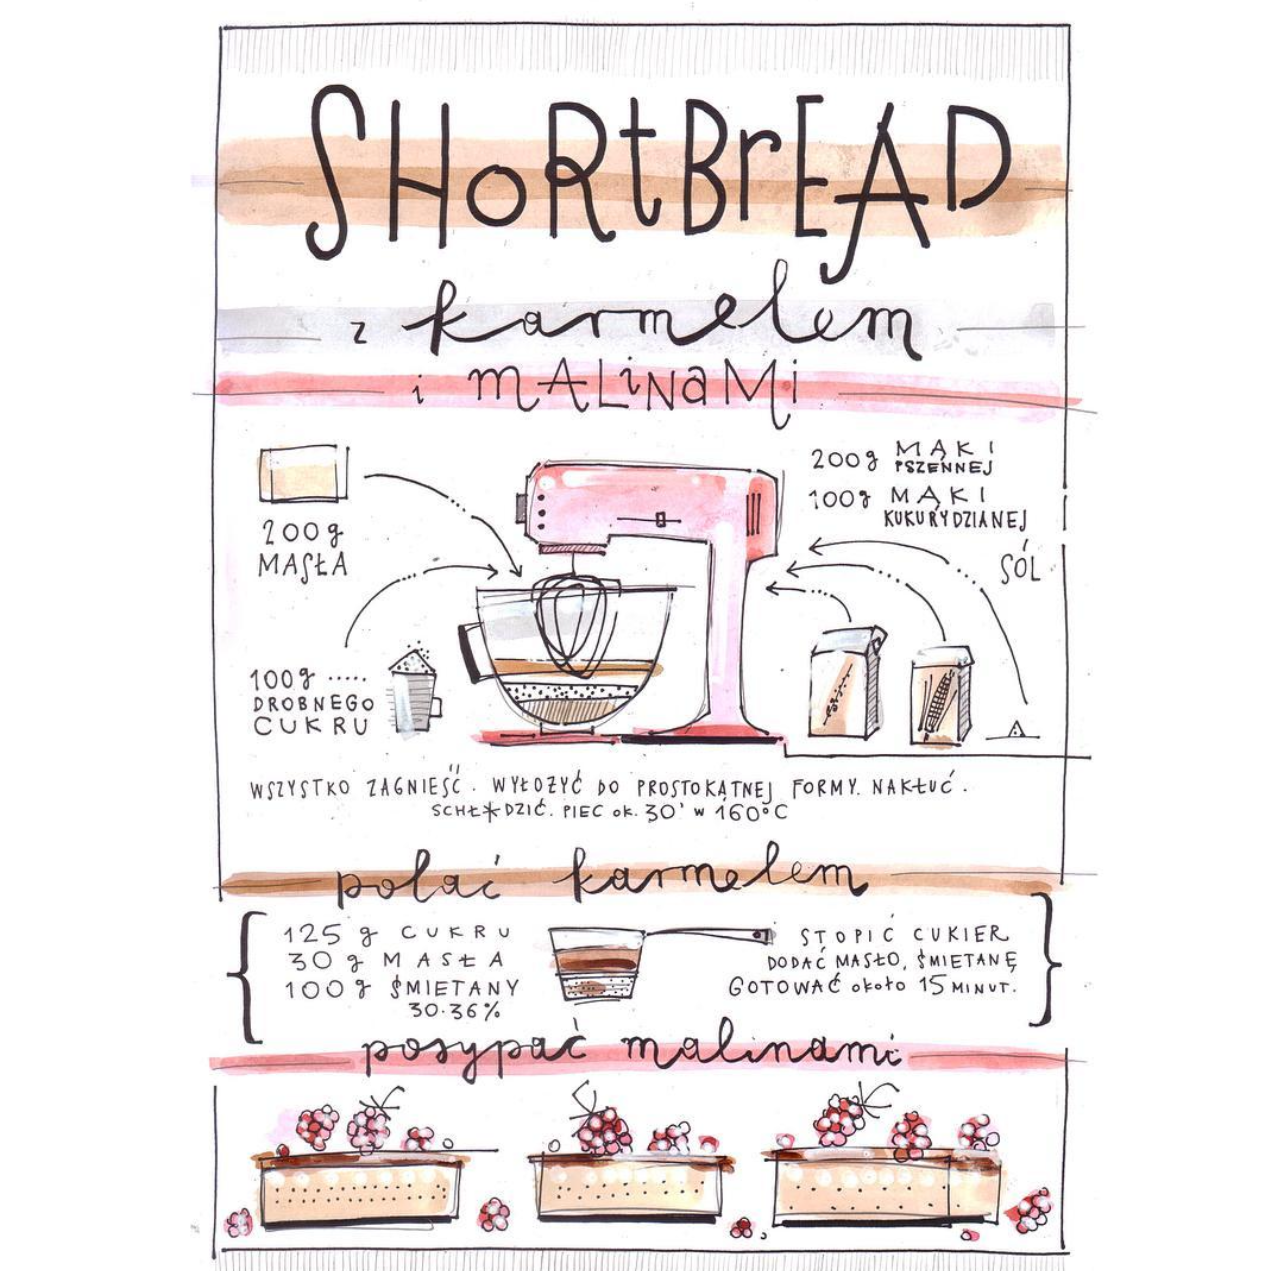 SHORTBREAD
z karmelem
i MALINAMI
200g MASŁA
100g ..... DROBNEGO CUKRU
200g MĄKI PSZENNEJ
100g MĄKI KUKURYDZIANEJ
SÓL
WSZYSTKO ZAGNIEŚĆ. WYŁOŻYĆ DO PROSTOKĄTNEJ FORMY. NAKŁUĆ.
SCHŁODZIĆ. PIEC OK. 30' W 160°C
polać karmelem
125 g CUKRU
30 g MASŁA
100 g ŚMIETANY
30-36%
STOPIĆ CUKIER
DODAĆ MASŁO, ŚMIETANĘ
GOTOWAĆ około 15 MINUT.
posypać malinami